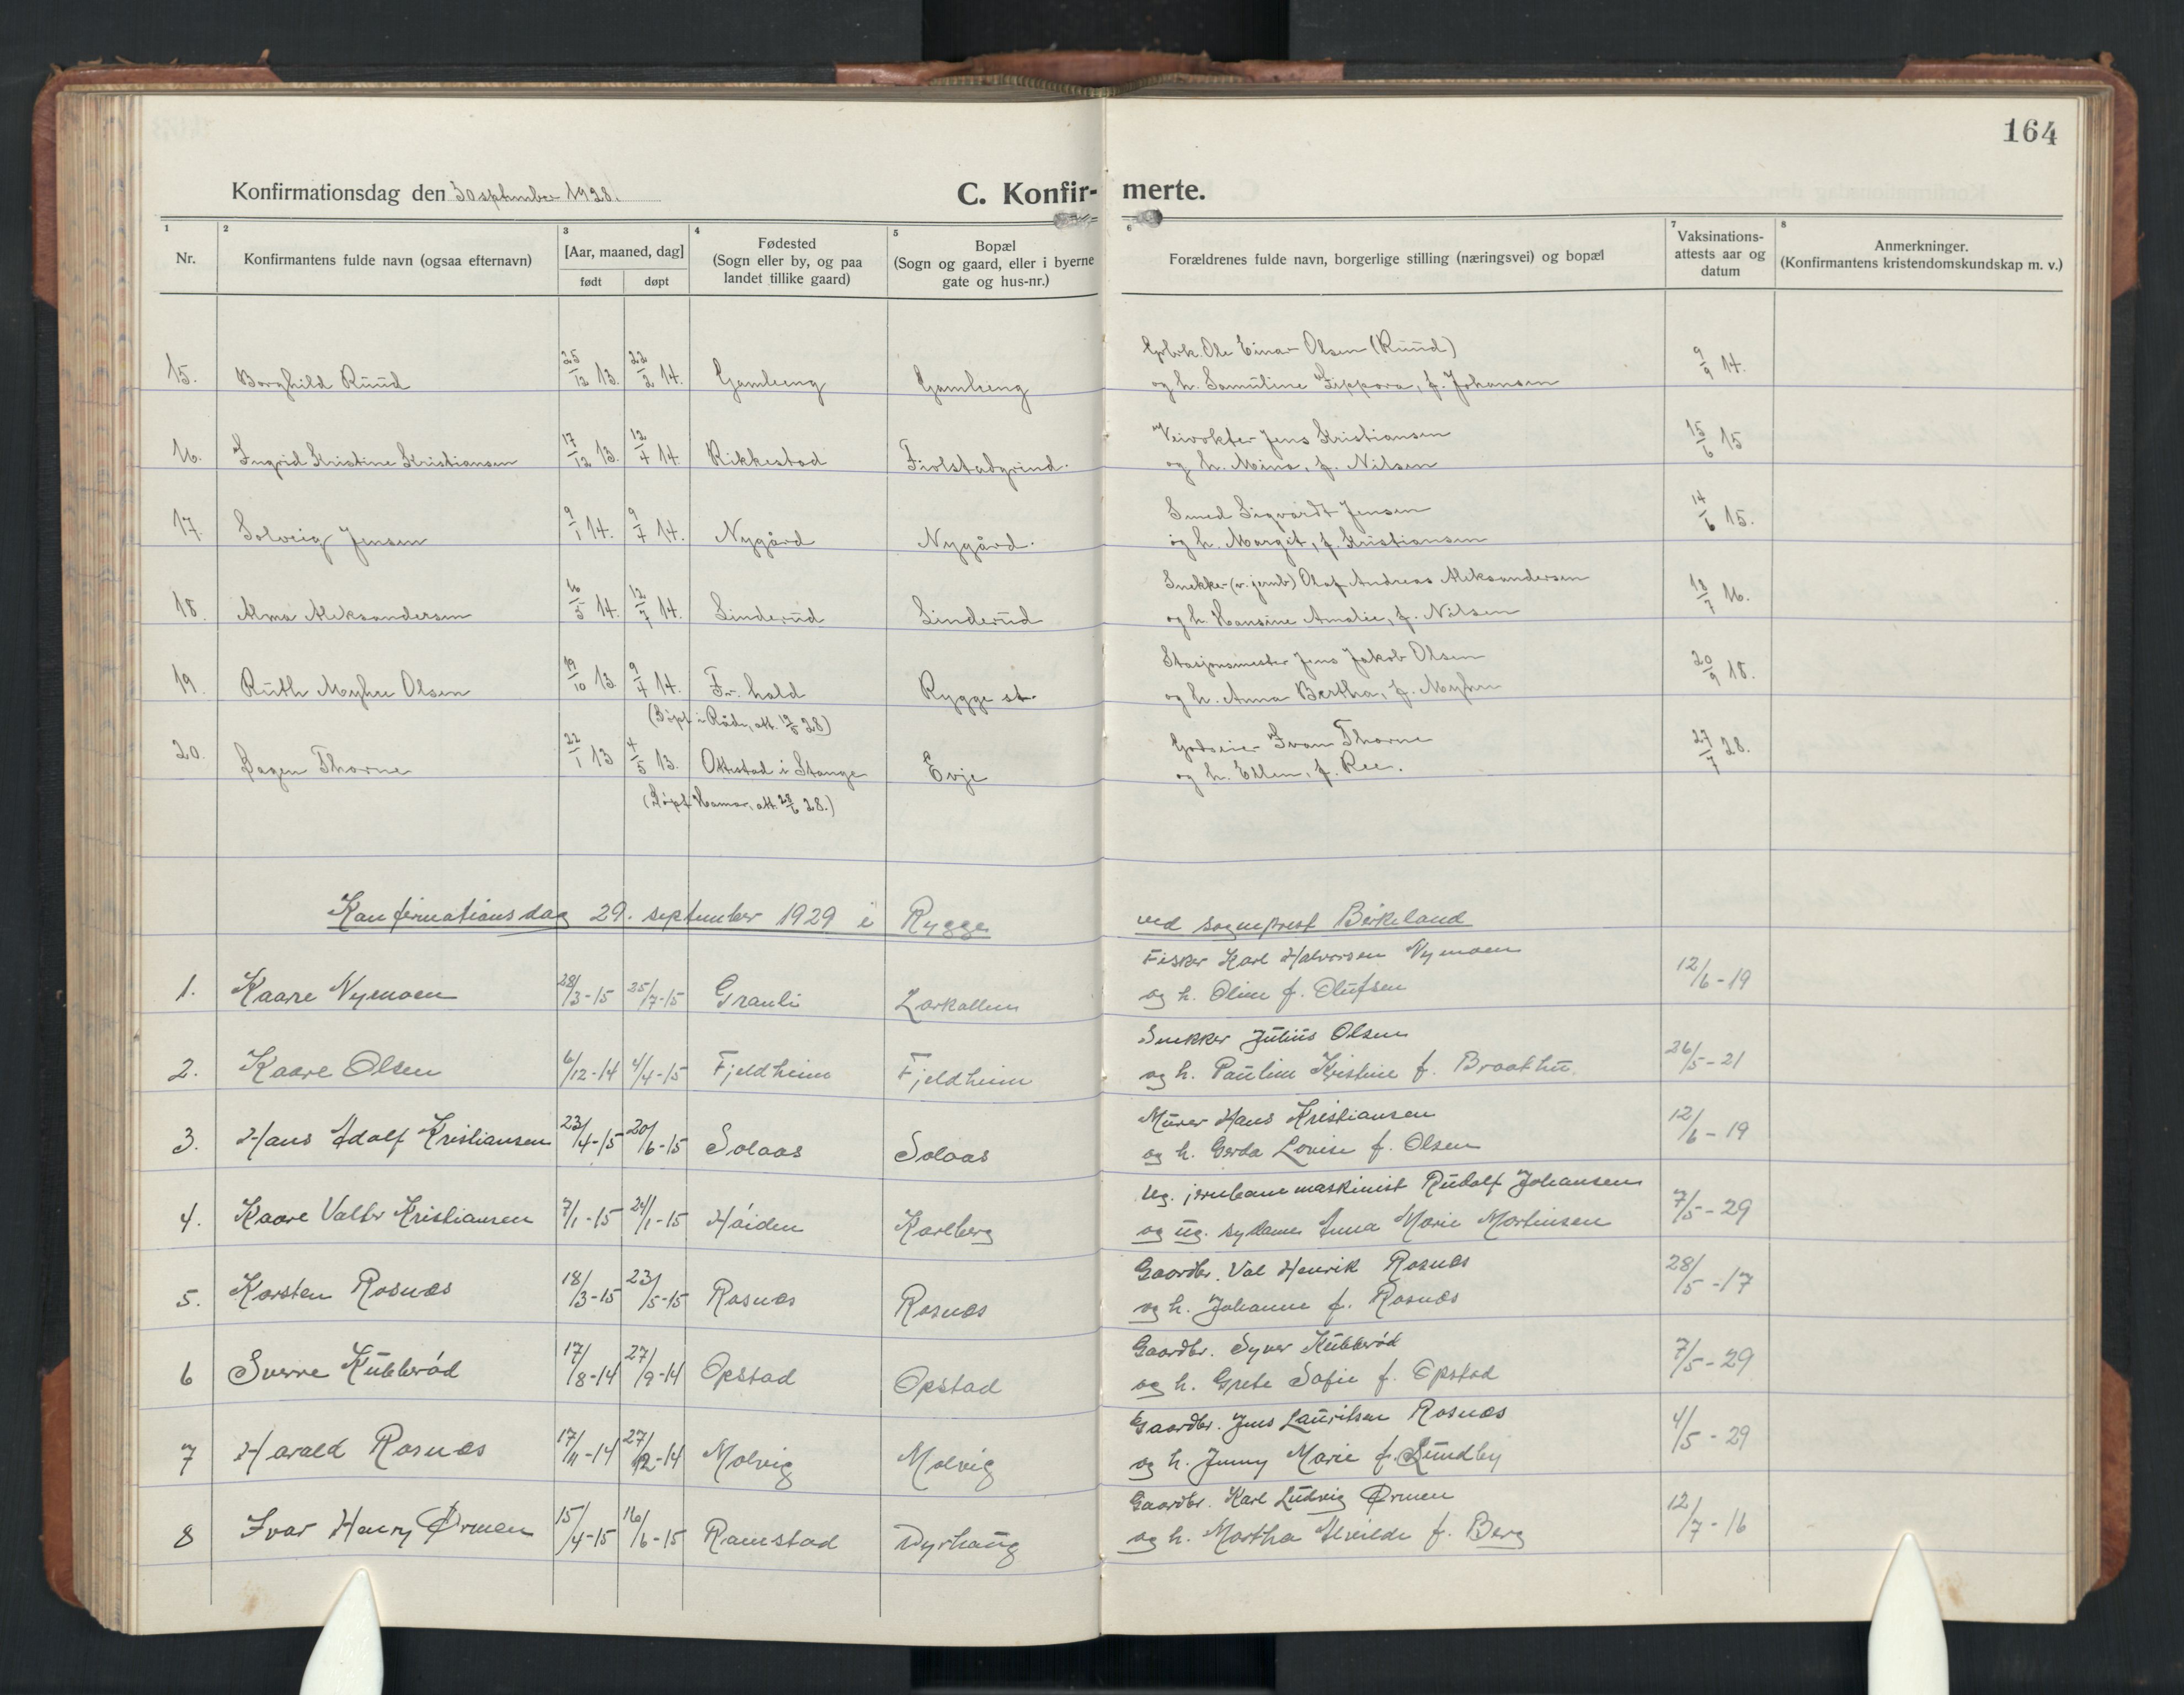 164
Konfirmationsdag den 30 september 1928.
C. Konfirmerte.
1 2 3 4 5 6 7 8
Nr.
Konfirmantens fulde navn (ogsaa efternavn)
[Aar, maaned, dag]
født døpt
Fødested
(Sogn eller by, og paa
landet tillike gaard)
Bopæl
(Sogn og gaard, eller i byerne
gate og hus-nr.)
Forældrenes fulde navn, borgerlige stilling (næringsvei) og bopæl
Vaksinations-
attests aar og
datum
Anmerkninger.
(Konfirmantens kristendomskundskap m. v.)
Gbrk. Ole Einar Olsen (Ruud)
15. Borghild Ruud 25/12 13. 22/2 14. Gamleeng Gamleeng og h. Samuline Zippora, f. Johansen 9/9 14.
Veivokter Jens Kristiansen
16. Ingrid Kristine Kristiansen 17/12 13. 12/4 14. Rikkestad Fiolstadgrind. og h. Mina, f. Nilsen 15/6 15
Smed Sigvardt Jensen
17. Solveig Jensen 9/1 14. 9/7 14. Nygård Nygård. og h. Margit, f. Kristiansen 14/6 15.
Snekker (v. jernb) Olaf Andreas Aleksandersen
18. Alma Aleksandersen 16/5 14. 12/7 14. Linderud Linderud og h. Hansine Amalie, f. Nilsen 12/7 16.
Stasjonsmester Jens Jakob Olsen
19. Ruth Myhre Olsen 19/10 13. 9/4 14. Fr. hald Rygge st. og h. Anna Bertha, f. Myhre 20/9 18.
(Døpt i Råde, att. 12/5 28)
Godseier Ivan Thorne
20. Dagen Thorne 22/1 13 4/5 13. Ottestad i Stange Evje og h. Ellen, f. Ree. 27/7 28.
(Døpt Hamar, att. 28/6 28.)
Konfirmationsdag 29. september 1929 i Rygge ved sogneprest Birkeland
Fisker Karl Halvorsen Nymoen
1. Kaare Nymoen 28/3-15 25/7-15 Granli Larkollen og h. Oline f. Olufsen 12/6-19
Snekker Julius Olsen
2. Kaare Olsen 6/12-14 4/4-15 Fjeldheim Fjeldheim og h. Pauline Kristine f. Braathu. 26/5-21
Murer Hans Kristiansen
3. Hans Adolf Kristiansen 23/4-15 20/6-15 Solaas Solaas og h. Gerda Louise f. Olsen 12/6-19
Ug. jernbanemaskinist Rudolf Johansen
4. Kaare Valter Kristiansen 7/1-15 24/1-15 Håiden Karlberg og ug. sydame Anna Marie Martinsen 7/5-29
Gaardbr. Val Henrik Rosnæs
5. Karsten Rosnæs 18/3-15 23/5-15 Rosnæs Rosnæs og h. Johanne f. Rosnæs 28/5-17
Gaardbr. Syver Kubberød
6 Sverre Kubberød 17/8-14 27/9-14 Opstad Opstad og h. Grete Sofie f. Opstad 7/5-29
Gaardbr. Jens Lauritsen Rosnæs
7 Harald Rosnæs 17/11-14 27/12-14 Molvig Molvig og h. Jenny Marie f. Sundby 4/5-29
Gaardbr. Karl Ludvig Ørmen
8 Ivar Henry Ørmen 15/4-15 16/6-15 Ramstad Dyrhaug og h. Martha Alvilde f. Berg 12/7-16